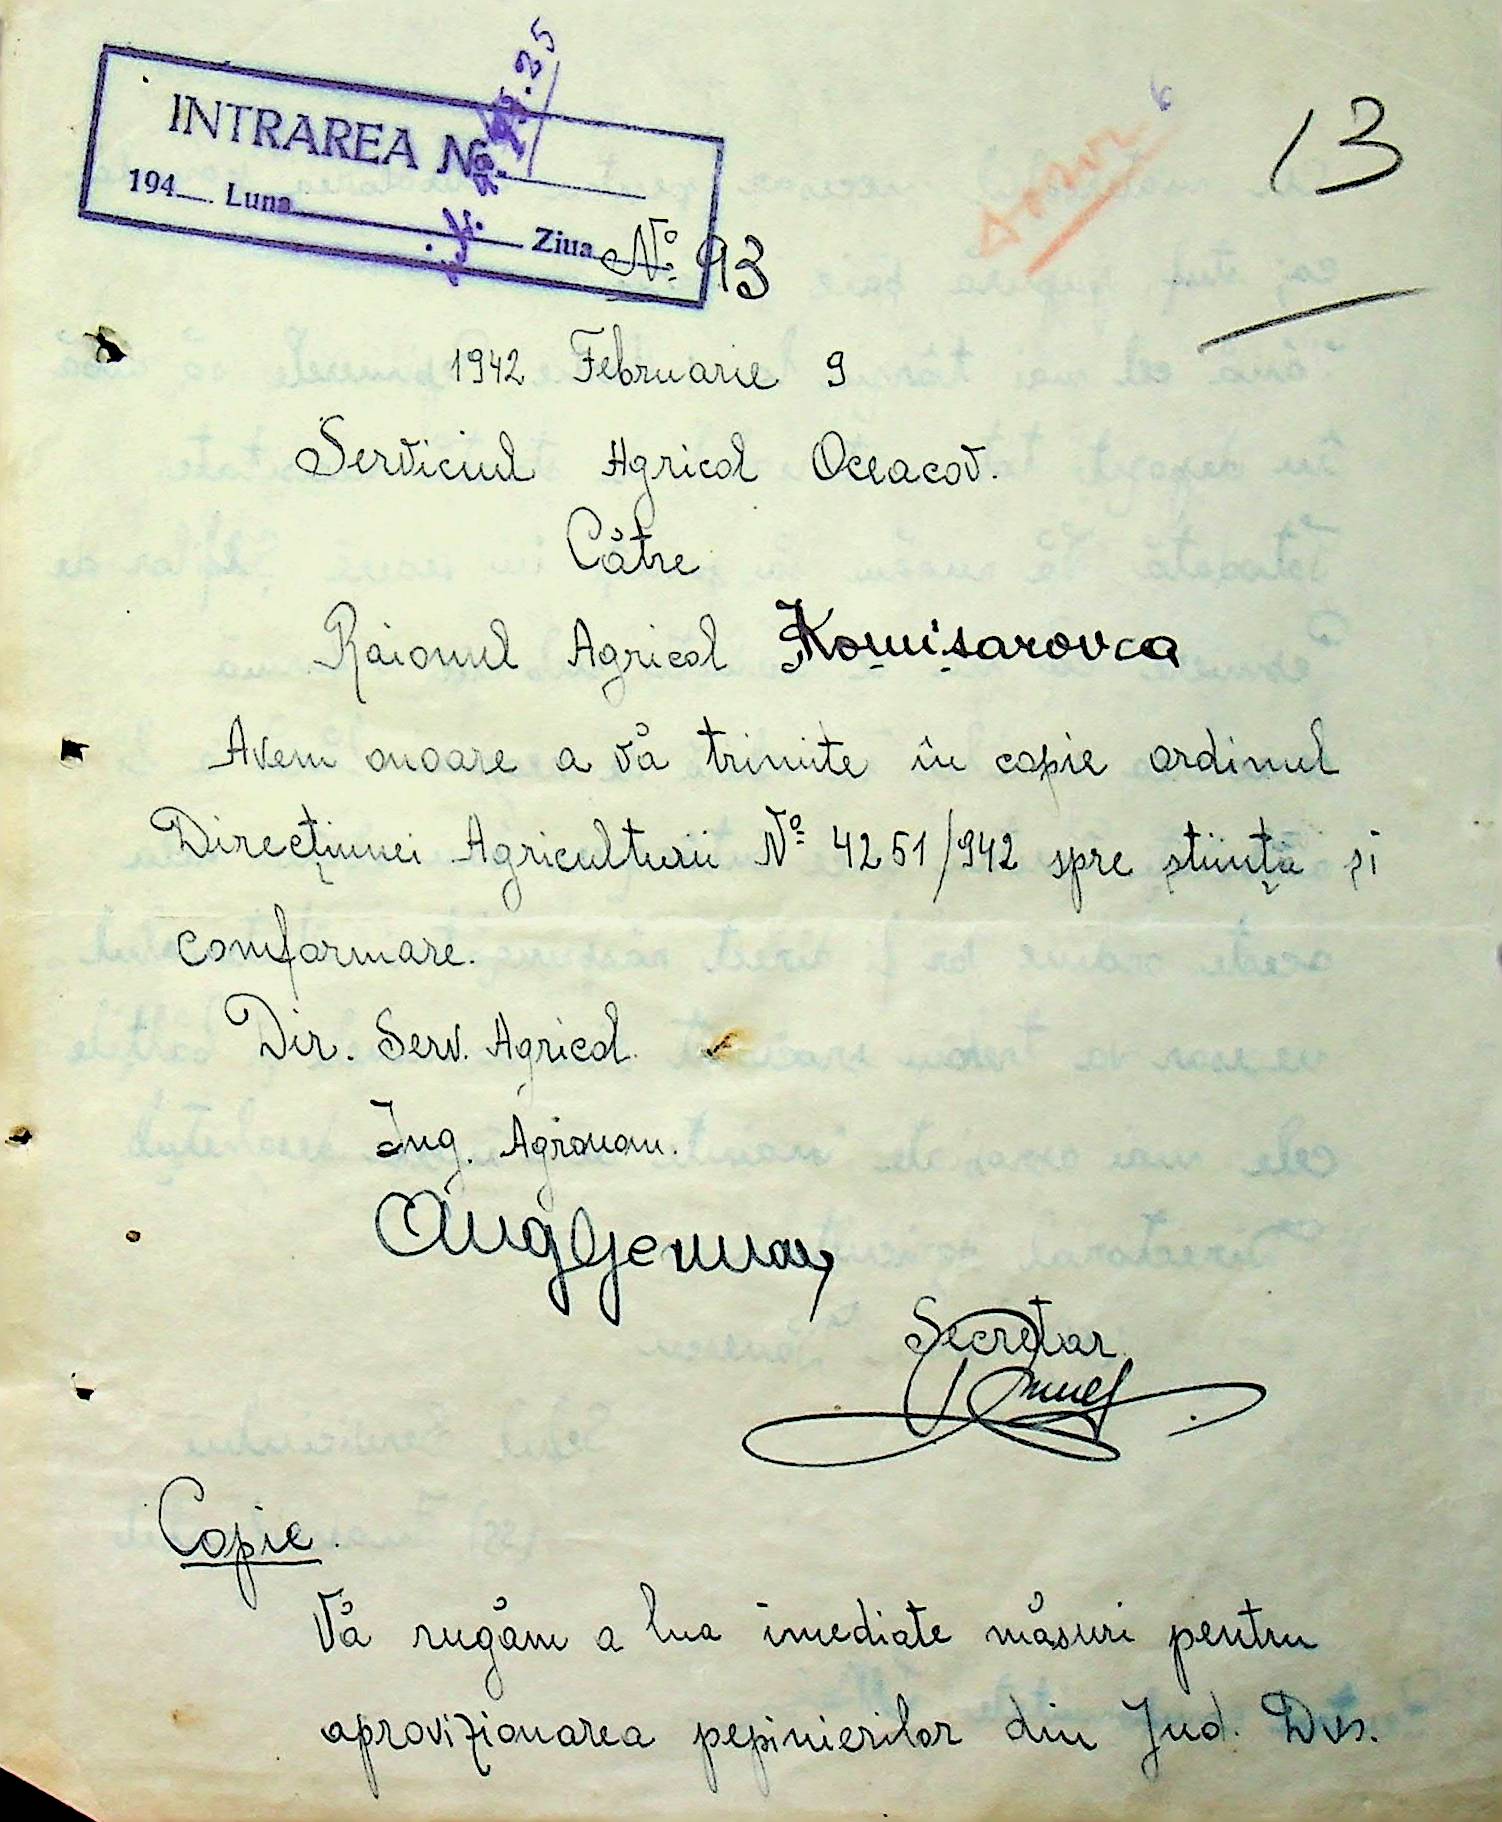 INTRAREA No.
194 Luna Ziua
13
No 93
1942 Februarie 9
Serviciul Agricol Oceacov.
Către
Raionul Agricol Komisarovca
Avem onoare a vă trimite în copie ordinul
Direcțiunei Agriculturii No 4251/942 spre știință și
comformare.
Dir. Serv. Agricol.
Ing. Agronom.
Secretar
Copie.
Vă rugăm a lua imediate măsuri pentru
aprovizionarea pepinierilor din Jud. Dvs.